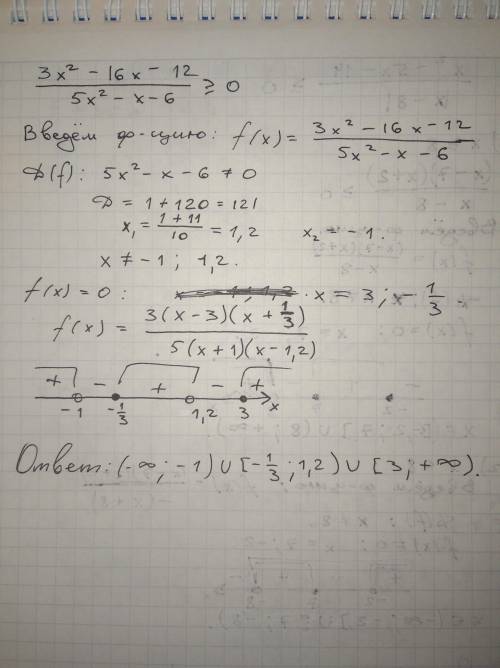 (3x² - 16x - 12)/(5x² - x - 6) ≥ 0
Введём ф-цию: f(x) = (3x² - 16x - 12)/(5x² - x - 6)
D(f): 5x² - x - 6 ≠ 0
D = 1 + 120 = 121
x₁ = (1 + 11)/10 = 1,2 x₂ = -1.
x ≠ -1; 1,2.
f(x) = 0: x = 3; -1/3.
f(x) = 3(x - 3)(x + 1/3)/5(x + 1)(x - 1,2)
+ - + - +
-1 -1/3 1,2 3 x
Ответ: (-∞; -1) ∪ [-1/3; 1,2) ∪ [3; +∞).